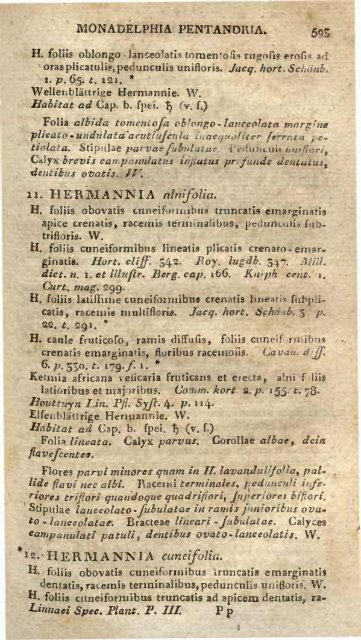 MONADELPHIA PENTANDRIA. 593
H. foliis oblongo-lanceolatis tomentosis rugosis erosis ad
oras plicatulis, pedunculis unifloris. Jacq. hort. Schönb.
1. p. 65. t. 121. *
Wellenblättrige Hermannie. W.
Habitat ad Cap. b. spei. ♄ (v. s.)
Folia albida tomentosa oblongo-lanceolata margine
plicato-undulata acutiuscula inaequaliter serrata pe-
tiolata. Stipulae parvae subulatae. Pedunculi uniflori,
Calyx brevis campanulatus inflatus profunde dentatus,
dentibus ovatis. W.
11. HERMANNIA alnifolia.
H. foliis obovatis cuneiformibus truncatis emarginatis
apice crenatis, racemis terminalibus, pedunculis sub-
trifloris. W.
H. foliis cuneiformibus lineatis plicatis crenato-emar-
ginatis. Hort. cliff. 342. Roy. lugdb. 347. Mill.
dict. n. 1. et illustr. Berg. cap. 166. Kniph. cent. 1.
Curt. mag. 299.
H. foliis latissime cuneiformibus crenatis lineatis subpli-
catis, racemis multifloris. Jacq. hort. Schönb. 3 p.
22. t. 291. *
H. caule fruticoso, ramis diffusis, foliis cuneiformibus
crenatis emarginatis, floribus racemosis. Cavan. diss.
6. p. 330. t. 179. f. 1. *
Ketmia africana vesicaria fruticans et erecta, alni foliis
latioribus et majoribus. Comm. hort. 2. p. 155. t. 78.
Houttuyn Lin. Pfl. Syst. 4. p. 114.
Elsenblättrige Hermannie. W.
Habitat ad Cap. b. spei, ♄ (v. s.)
Folia lineata. Calyx parvus. Corollae albae, dein
flavescentes.
Flores parvi minores quam in H. lavandulifolia, pal-
lide flavi nec albi. Racemi terminales, pedunculi infe-
riores triflori quandoque quadriflori, superiores biflori.
Stipulae lanceolato-subulatae in ramis junioribus ova-
to-lanceolatae. Bracteae lineari-subulatae. Calyces
campanulati patuli, dentibus ovato-lanceolatis. W.
*12. HERMANNIA cuneifolia.
H. foliis obovatis cuneiformibus truncatis emarginatis
dentatis, racemis terminalibus, pedunculis unifloris. W.
H. foliis cuneiformibus truncatis ad apicem dentatis, ra-
Linnaei Spec. Plant. P. III. Pp